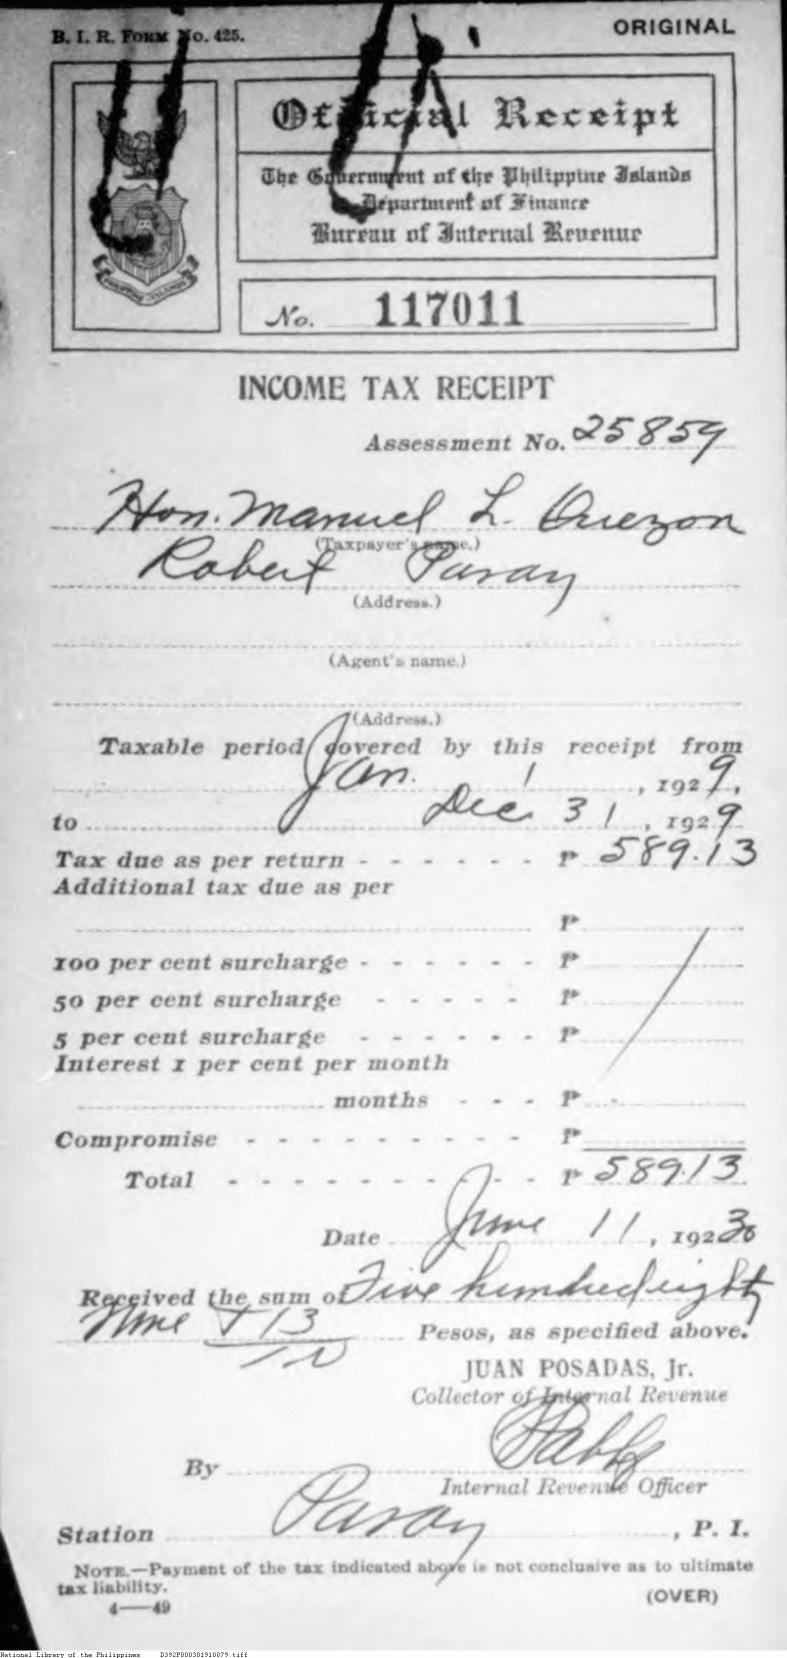 B. I. R. FORM No. 425.
ORIGINAL
Official Receipt
The Government of the Philippine Islands
Department of Finance
Bureau of Internal Revenue
PHILIPPINE ISLANDS
No. 117011
INCOME TAX RECEIPT
Assessment No. 25859
Hon. Manuel L. Quezon
(Taxpayer's name.)
Robert Pasay
(Address.)
(Agent's name.)
(Address.)
Taxable period covered by this receipt from
Jan. 1, 1929,
to Dec. 31, 1929
Tax due as per return - - - - - - ₱ 589.13
Additional tax due as per
₱
100 per cent surcharge - - - - - - ₱
50 per cent surcharge - - - - - ₱
5 per cent surcharge - - - - - - ₱
Interest 1 per cent per month
months - - - ₱
Compromise - - - - - - - - - - ₱
Total - - - - - - - - - - ₱ 589.13
Date June 11, 19230
Received the sum of Five hundred eighty
nine & 13 Pesos, as specified above.
JUAN POSADAS, Jr.
Collector of Internal Revenue
By
Internal Revenue Officer
Station Pasay, P. I.
NOTE.—Payment of the tax indicated above is not conclusive as to ultimate
tax liability.
4—49
(OVER)
National Library of the Philippines D392P000301910079.tiff